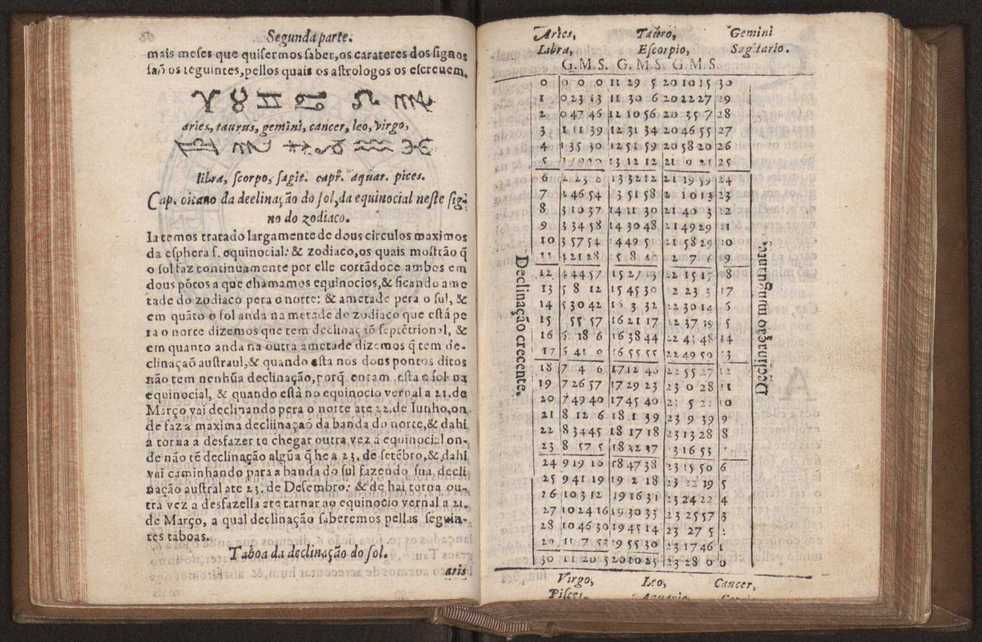 Segunda parte.
mais meses que quisermos saber, os carateres dos signos
saõ os seguintes, pellos quais os astrologos os escreuem.
♈ ♉ ♊ ♋ ♌ ♍
aries, taurus, gemini, cancer, leo, virgo,
♎ ♏ ♐ ♑ ♒ ♓
libra, scorpo, sagit. capr. aquar. pices.
Cap. oitauo da declinação do sol, da equinocial neste sig-
no do zodiaco.
Ia temos tratado largamente de dous circulos maximos
da esphera s. equinocial: & zodiaco, os quais mostrão q̃
o sol faz continuamente por elle cortãdoce ambos em
dous põtos a que chamamos equinocios, & ficando ame
tade do zodiaco pera o norte: & ametade pera o sul, &
em quãto o sol anda na metade do zodiaco que està pe
ra o norte dizemos que tem declinação septẽtrional, &
em quanto anda na outra ametade dizemos q̃ tem de-
clinaçaõ austraul, & quando esta nos dous pontos ditos
não tem nenhũa declinação, porq̃ entam esta o sol na
equinocial, & quando està no equinocio vernal a 21. de
Março vai declinando pera o norte ate 22. de Iunho, on
de faz a maxima decliinaçaõ da banda do norte, & dahi
a torna a desfazer te chegar outra vez à equinocial on-
de não tẽ declinação algũa q̃ he a 23. de setẽbro, &, dahi
vai caminhando para a banda do sul fazendo sua decli
nação austral ate 23. de Desembro: & de hai torna ou-
tra vez a desfazella ate tarnar ao equinocio vernal a 21.
de Março, a qual declinação saberemos pellas seguin-
tes taboas.
Taboa da declinação do sol.
aris
Aries, Tauro, Gemini
Libra, Escorpio, Sagitario.
G. M. S. G. M. S. G. M. S.
Declinação crecente.
0 0 0 0 11 29 5 20 10 15 30
1 0 23 13 11 30 6 20 22 27 29
2 0 47 46 12 10 56 20 35 7 28
3 1 11 39 12 31 34 20 46 55 27
4 1 35 30 12 51 59 20 58 20 26
5 13 12 12 21 9 21 25
6 2 23 13 32 12 21 19 59 24
7 2 46 54 13 51 58 2 1 0 13 23
8 3 10 37 14 11 30 21 40 3 22
9 3 34 58 14 30 48 21 49 29 21
10 3 57 54 14 49 5 21 58 29 20
11 4 21 28 15 8 40 22 7 6 19
12 4 44 57 15 27 13 22 15 17 18
13 5 8 12 15 45 30 22 23 3 17
14 5 30 42 16 3 32 22 30 14 16
15 5 55 57 16 21 17 22 37 19 15
16 6 18 6 16 38 44 22 41 48 14
17 6 41 0 16 55 55 22 49 50 13
18 7 4 6 17 12 46 22 55 27 12
19 7 26 57 17 29 23 23 0 28 11
20 7 49 40 17 45 40 23 5 2 10
21 8 12 6 18 1 39 23 9 39 9
22 8 34 45 18 17 18 23 13 28 8
23 8 57 5 18 32 37 23 16 53 7
24 9 19 16 18 47 38 23 15 50 6
25 9 41 19 19 2 18 23 22 19 5
26 10 3 12 19 16 31 23 24 22 4
27 10 24 16 19 30 33 23 25 57 3
28 10 46 30 19 45 14 23 27 5 2
29 11 7 52 19 55 30 23 17 46 1
30 11 20 5 20 10 25 23 28 0 0
Declinação minguante.
Virgo, Leo, Cancer,